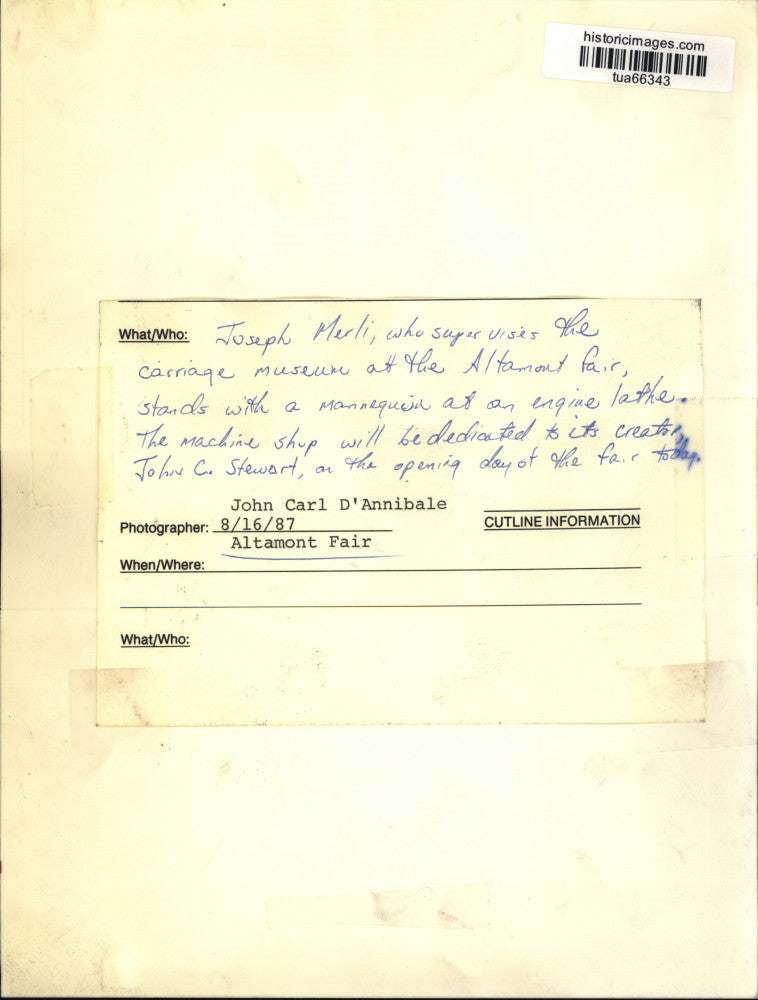 historicimages.com
tua66343
What/Who: Joseph Merli, who supervises the
carriage museum at the Altamont fair,
stands with a mannequin at an engine lathe.
The machine shop will be dedicated to its creator,
John C. Stewart, on the opening day of the fair today.
John Carl D'Annibale
Photographer: 8/16/87
CUTLINE INFORMATION
Altamont Fair
When/Where:
What/Who: